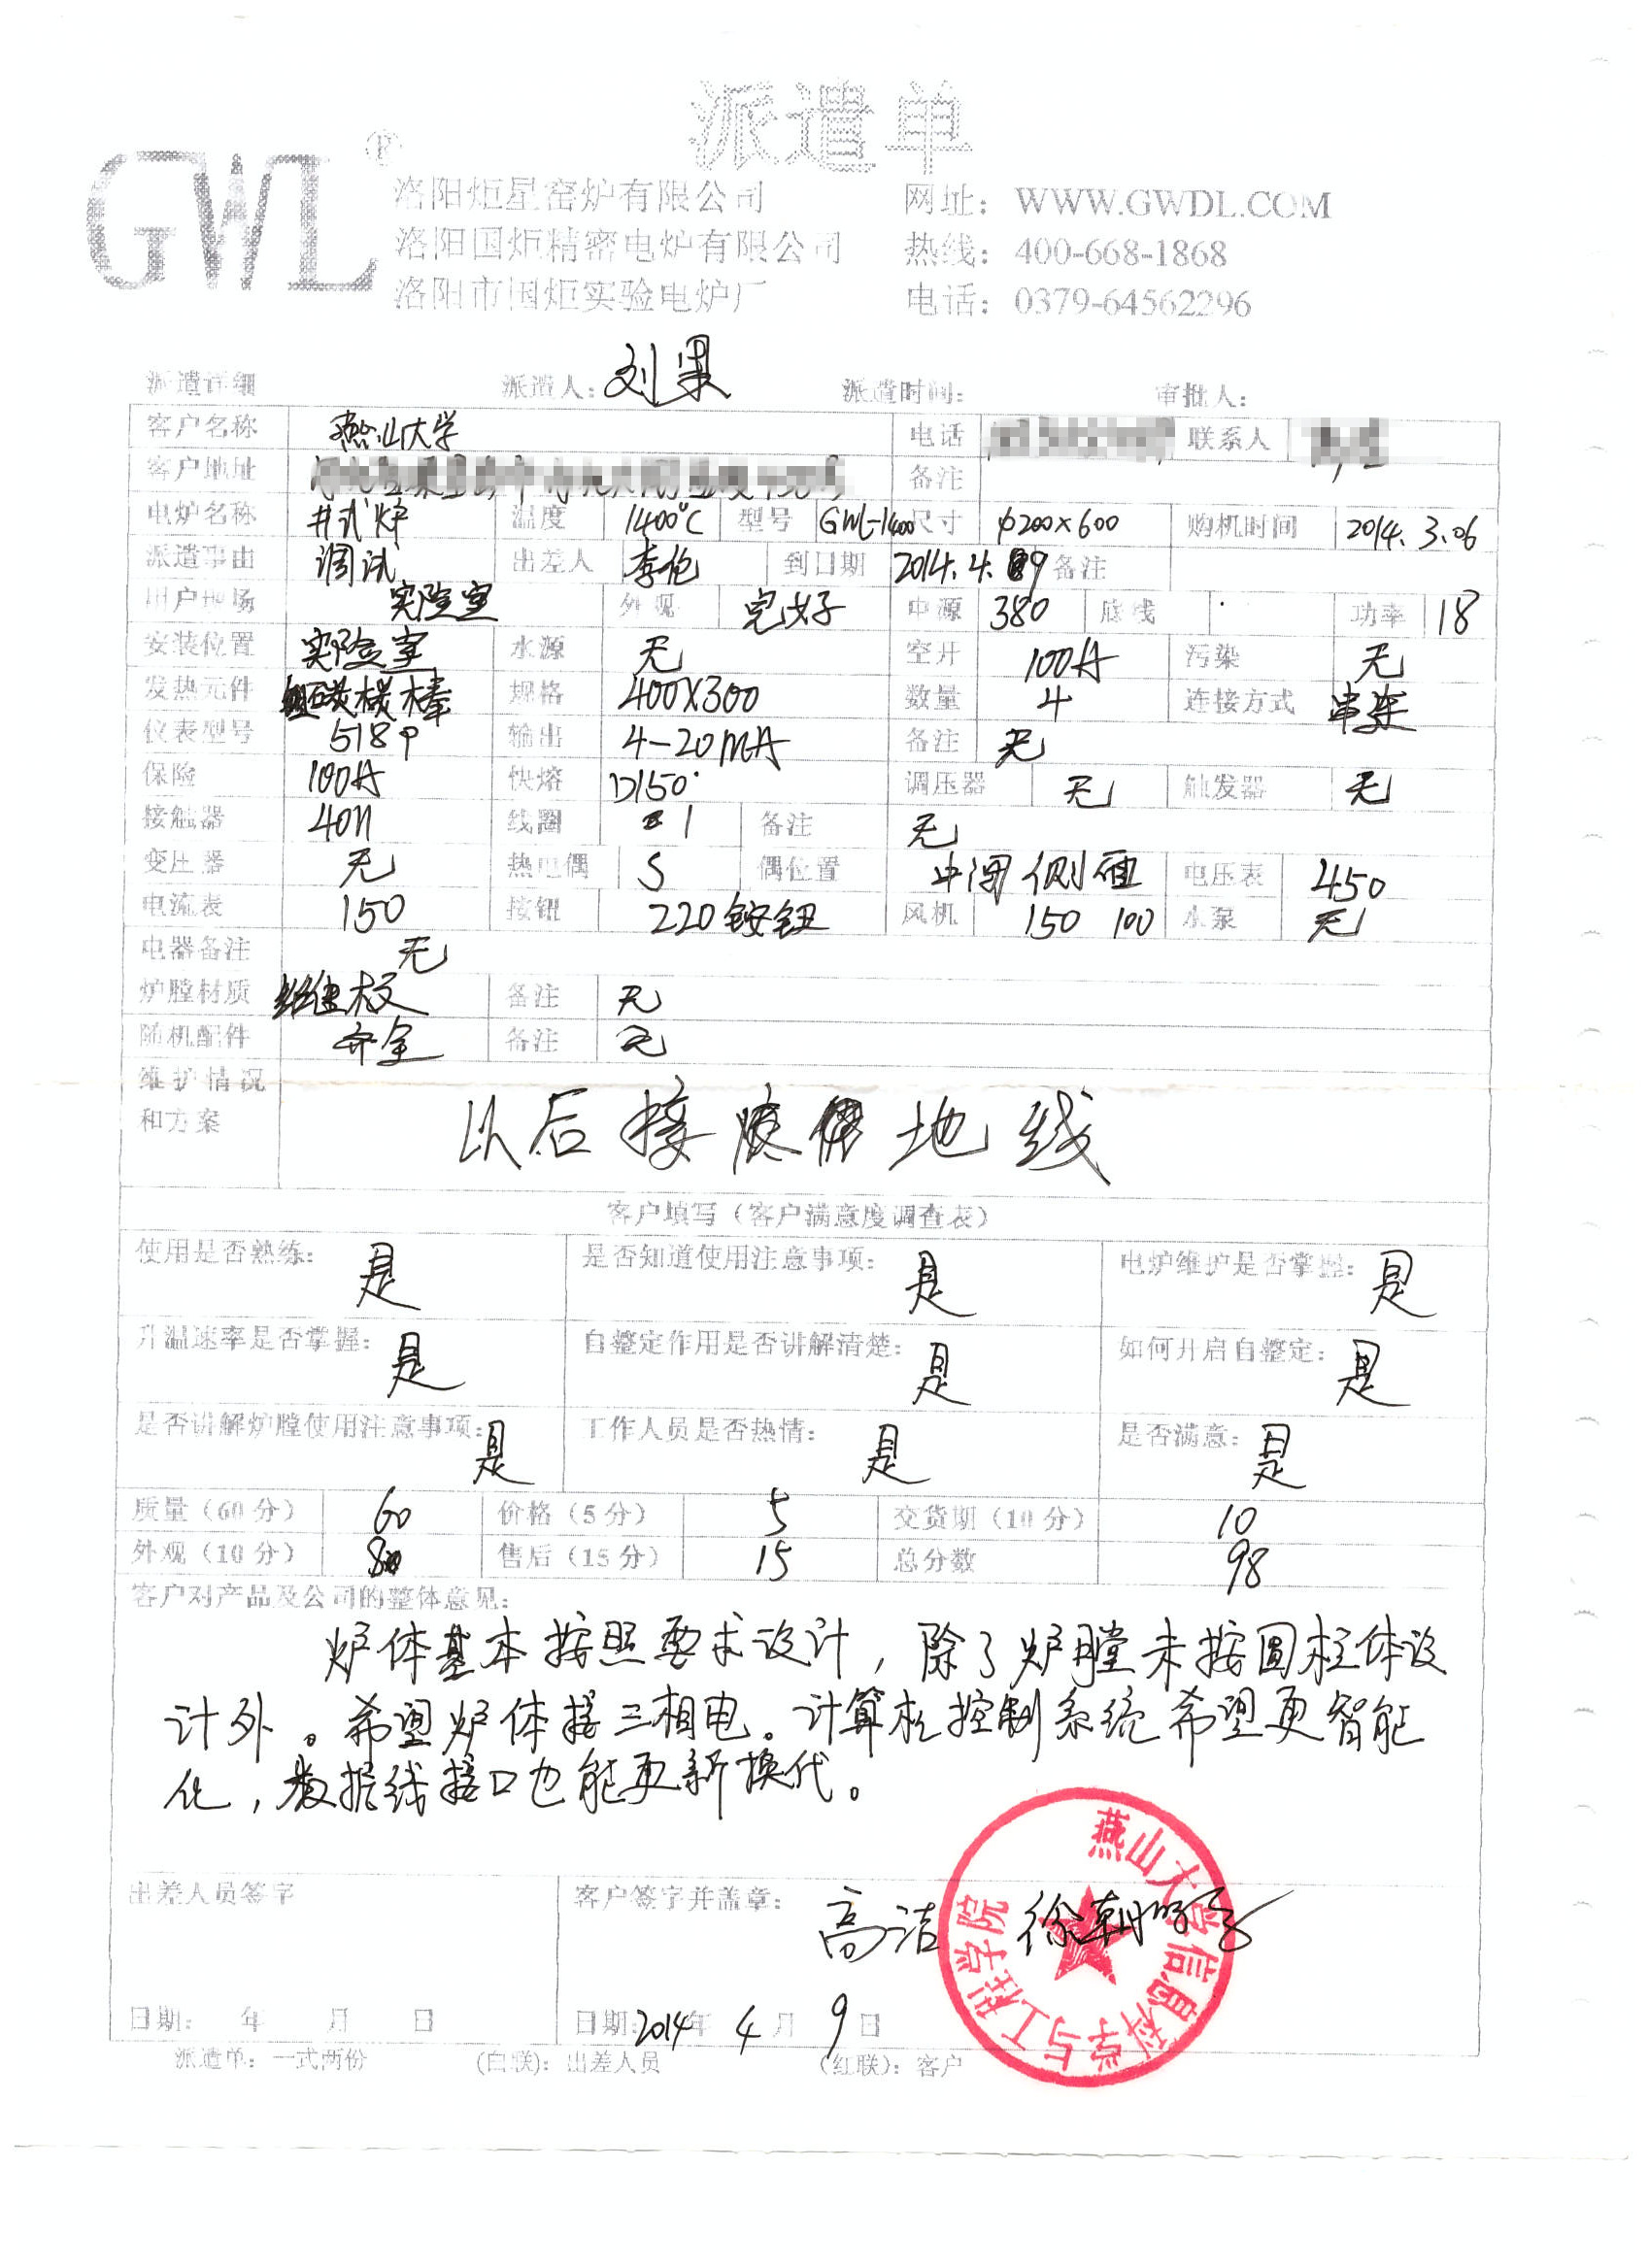 派遣单
GWL®
洛阳炬星窑炉有限公司 网址：WWW.GWDL.COM
洛阳国炬精密电炉有限公司 热线：400-668-1868
洛阳市国炬实验电炉厂 电话：0379-64562296
派遣详细 派遣人：刘果 派遣时间： 审批人：
客户名称 燕山大学 电话 联系人
客户地址 备注
电炉名称 井式炉 温度 1400℃ 型号 GWL-1400 尺寸 φ200×600 购机时间 2014.3.06
派遣事由 调试 出差人 李伦 到日期 2014.4.9 备注
用户现场 实验室 外观 完好 电源 380 底线 功率 18
安装位置 实验室 水源 无 空开 100A 污染 无
发热元件 硅碳棒 规格 400X300 数量 4 连接方式 串连
仪表型号 518P 输出 4-20MA 备注 无
保险 100A 快熔 D150 调压器 无 触发器 无
接触器 4011 线圈 1 备注 无
变压器 无 热电偶 S 偶位置 中间侧面 电压表 450
电流表 150 按钮 220按钮 风机 150 100 水泵 无
电器备注 无
炉膛材质 纤维板 备注 无
随机配件 齐全 备注 无
维护情况
和方案 以后接 地线
客户填写（客户满意度调查表）
使用是否熟练：是 是否知道使用注意事项：是 电炉维护是否掌握：是
升温速率是否掌握：是 自整定作用是否讲解清楚：是 如何开启自整定：是
是否讲解炉膛使用注意事项：是 工作人员是否热情：是 是否满意：是
质量（60分） 60 价格（5分） 5 交货期（10分） 10
外观（10分） 8 售后（15分） 15 总分数 98
客户对产品及公司的整体意见：
炉体基本按照要求设计，除了炉膛未按圆柱体设
计外。希望炉体接三相电。计算机控制系统希望更智能
化，数据线接口也能更新换代。
出差人员签字 客户签字并盖章：高洁 徐朝鹏
燕山大学信息科学与工程学院
日期： 年 月 日 日期：2014年4月9日
派遣单：一式两份 （白联）：出差人员 （红联）：客户